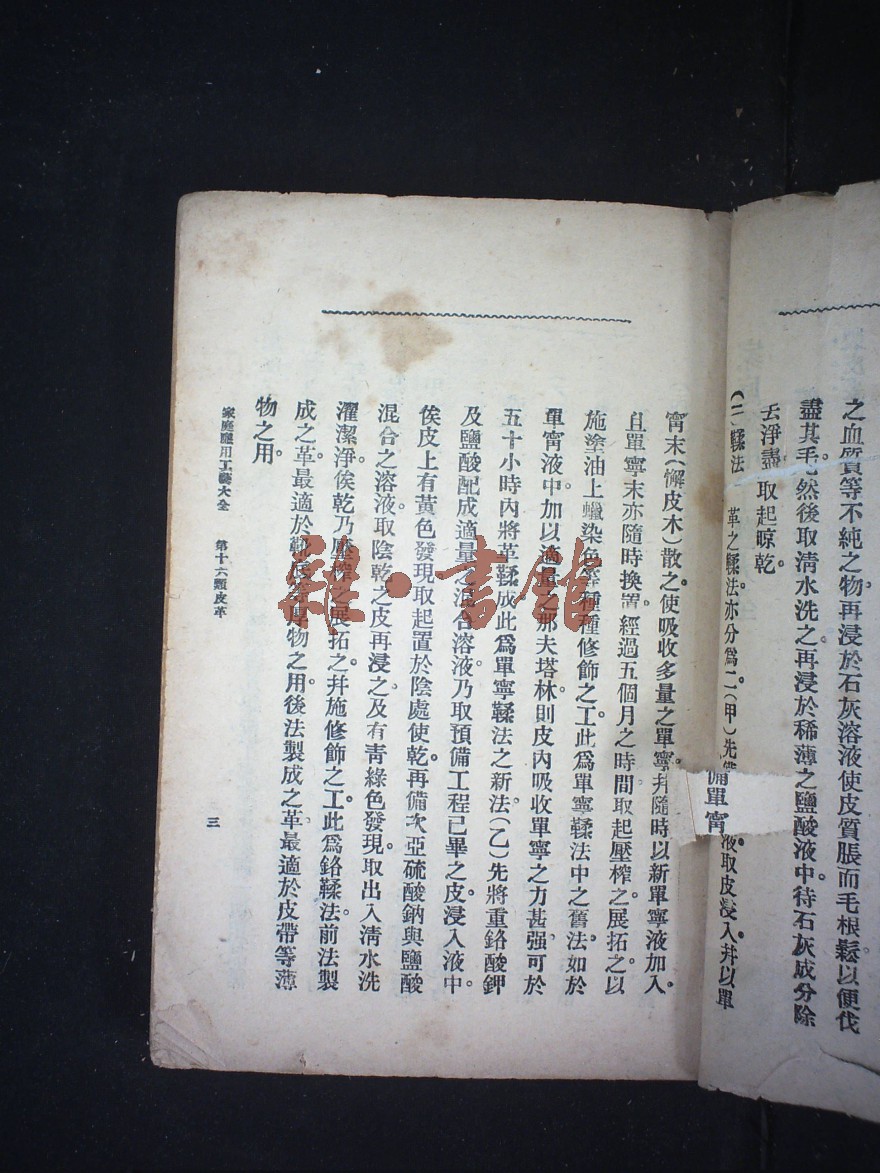 之血質等不純之物。再浸於石灰溶液使皮質脹而毛根鬆以便伐
盡其毛。然後取淸水洗之。再浸於稀薄之鹽酸液中。待石灰成分除
去淨盡。取起晾乾。
(二)鞣法 革之鞣法亦分爲二。(甲)先備單甯液。取皮浸入。幷以單
甯末(懈皮木)散之。使吸收多量之單寧。幷隨時以新單寧液加入。
且單寧末亦隨時換置。經過五個月之時間。取起壓榨之。展拓之。以
施塗油上蠟染色等種種修飾之工。此爲單寧鞣法中之舊法。如於
單甯液中。加以適量之那夫塔林。則皮內吸收單寧之力甚强。可於
五十小時內將革鞣成。此爲單寧鞣法之新法。(乙)先將重鉻酸鉀
及鹽酸配成適量之混合溶液。乃取預備工程已畢之皮。浸入液中。
俟皮上有黃色發現。取起置於陰處使乾。再備次亞硫酸鈉與鹽酸
混合之溶液。取陰乾之皮再浸之。及有靑綠色發現。取出入淸水洗
濯潔淨。俟乾乃壓榨之。展拓之。幷施修飾之工。此爲鉻鞣法。前法製
成之革。最適於靴底等厚物之用。後法製成之革。最適於皮帶等薄
物之用。
家庭應用工藝大全 第十六類皮革
三
雜·書館